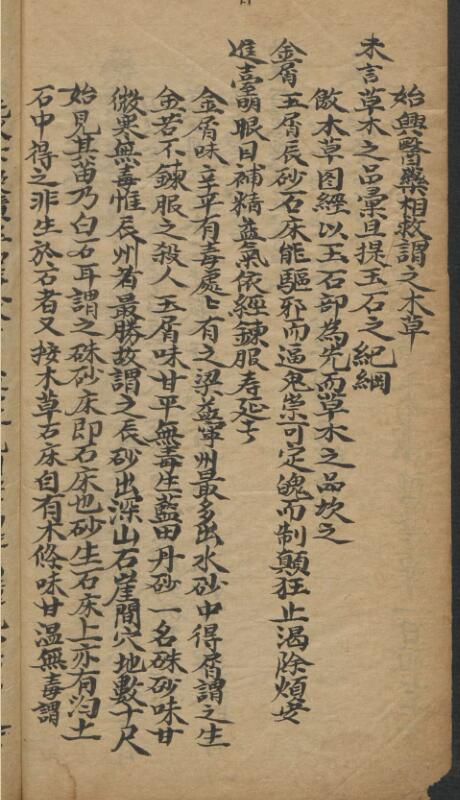 始興醫藥相救謂之木草
未言草木之品彙且提玉石之紀綱
故木草图經以玉石部為先而草木之品坎之
金屑玉屑辰砂石床能驅邪而逼鬼祟可定魄而制顛狂止渴除煩安
眼目補精益氣依經鍊服寿延
金屑味辛平有毒處〻有之梁益寧州最多出水砂中得屑謂之生
金若不鍊服之殺人玉屑味甘平無毒生藍田丹砂一名硃砂味甘
微寒無毒惟辰州者最勝故謂之辰砂出深山石崖間穴地數十尺
始見其苗乃白石耳謂之硃砂床即石床也砂生石床上亦有土
石中得之非生於石者又按木草石床自有木條味甘溫無毒謂